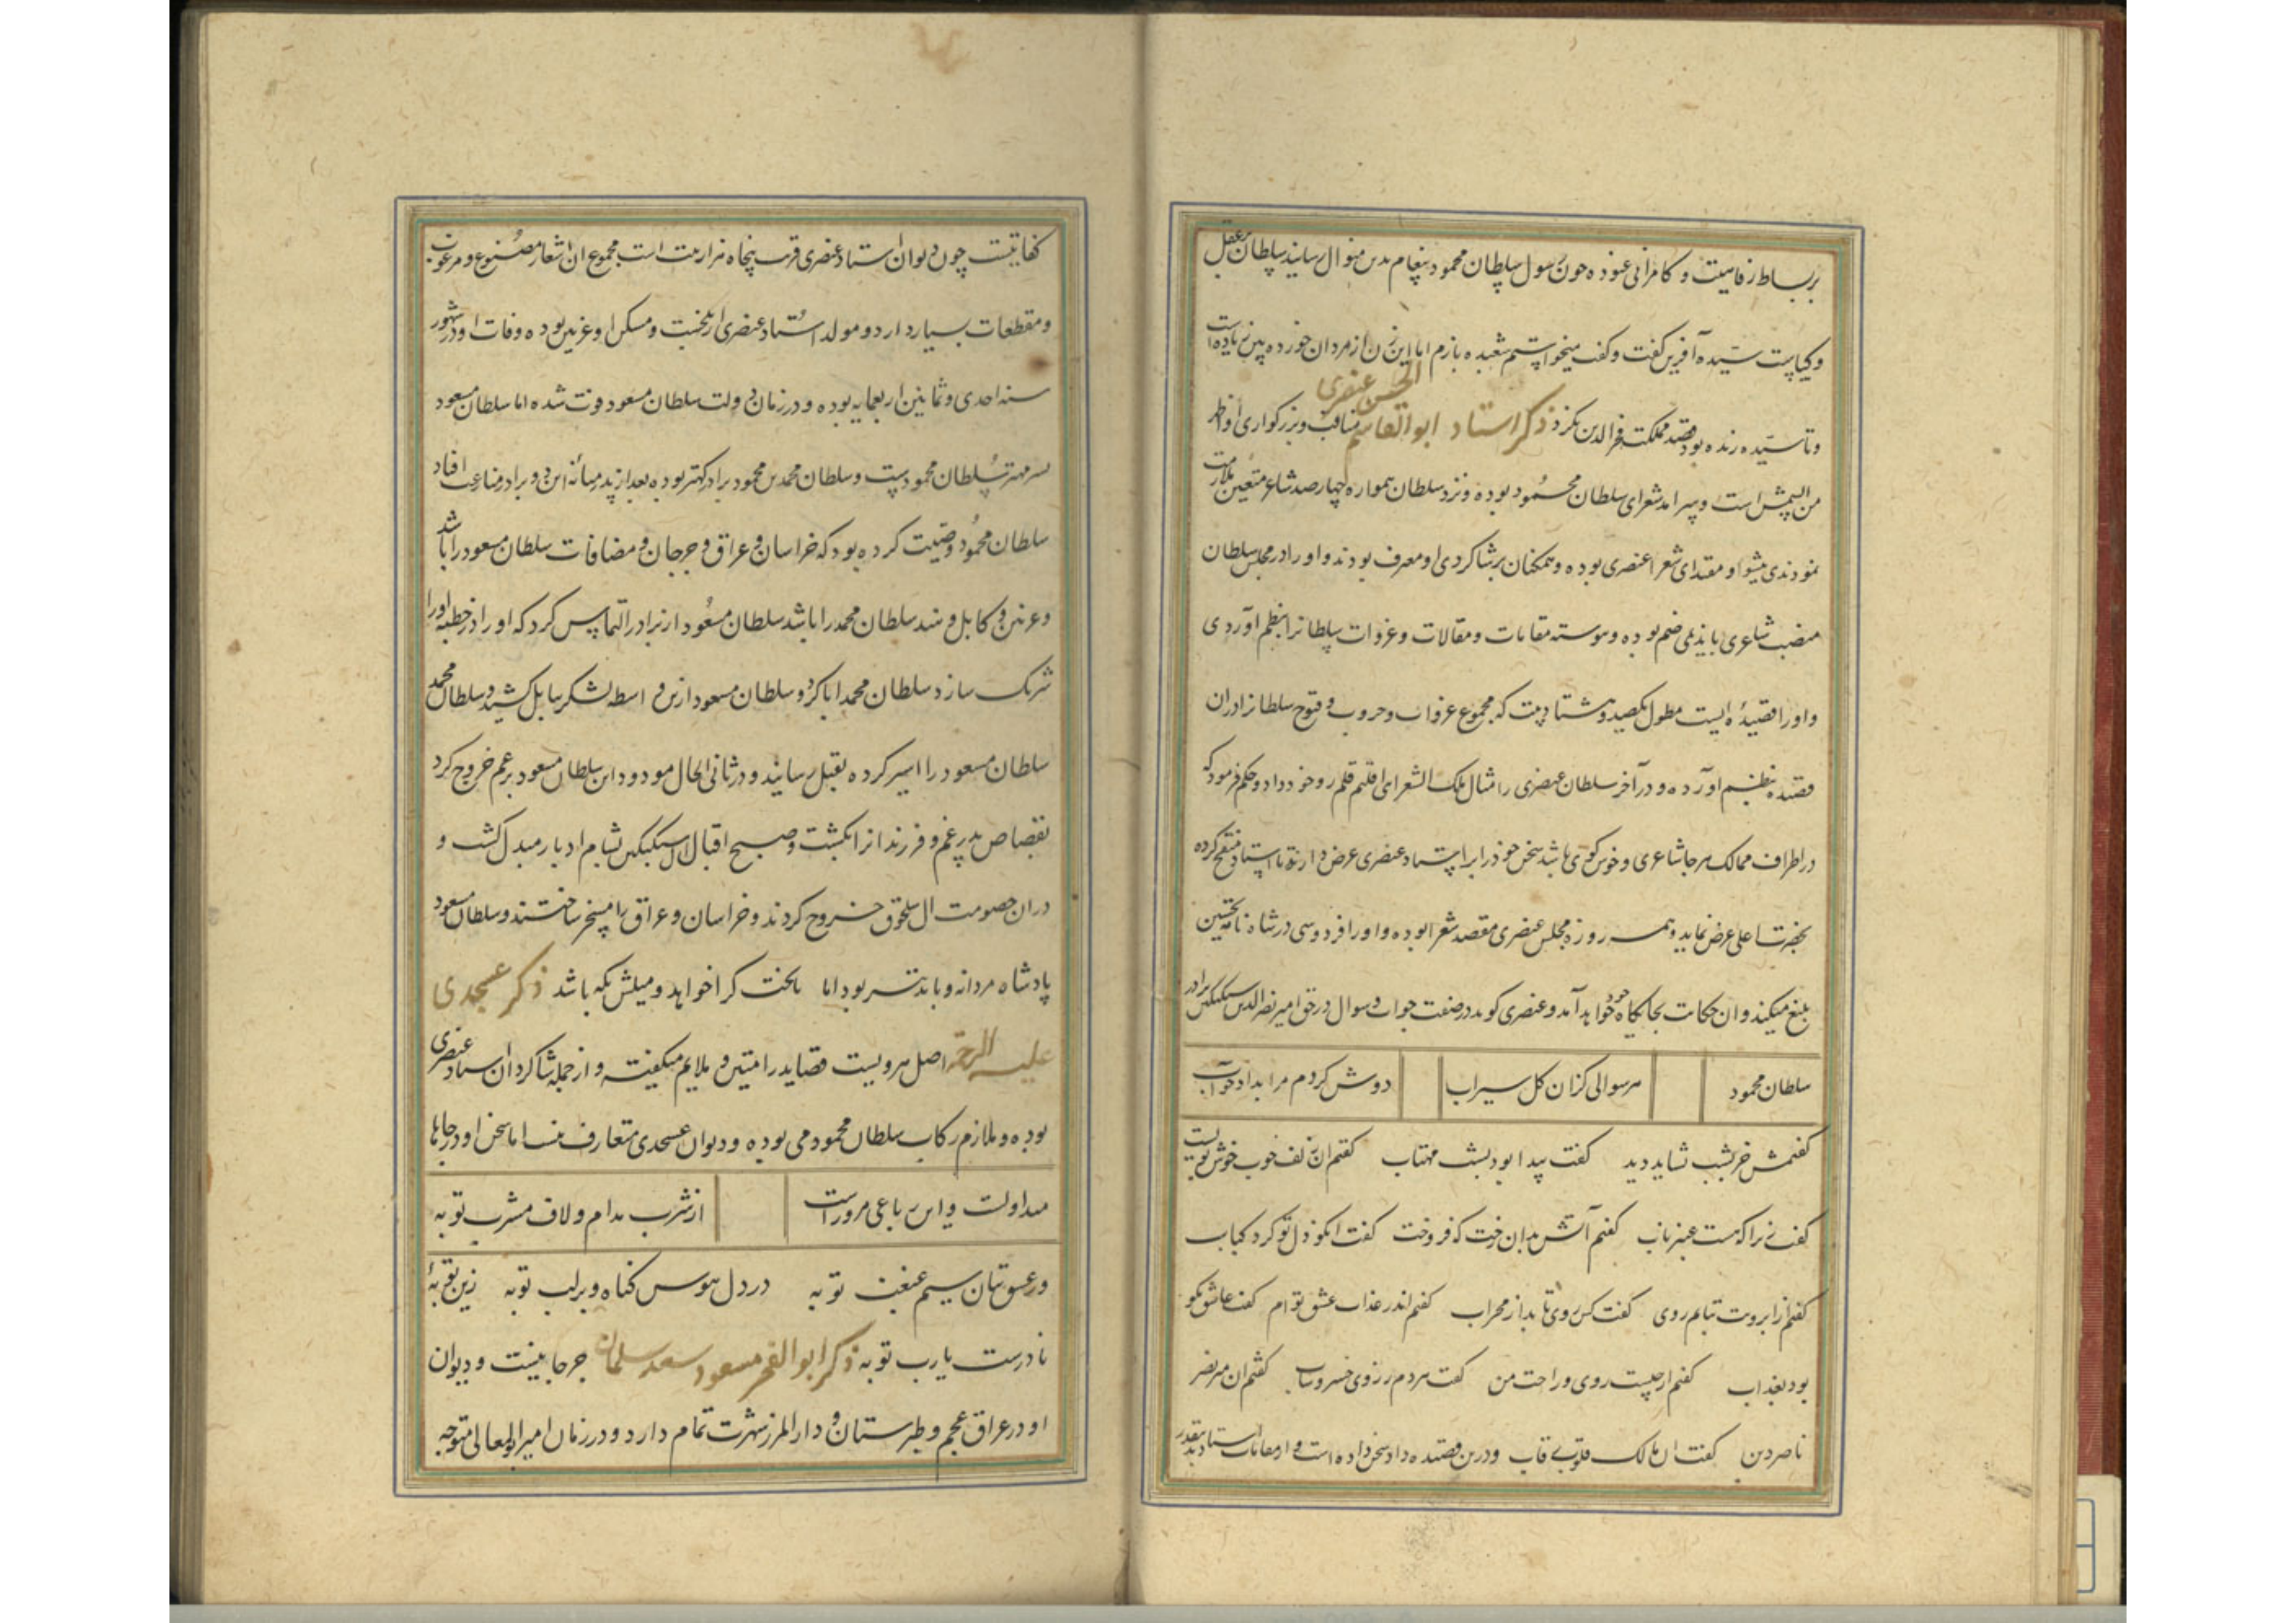 بر بساط رفاهیت و کامرانی غنوده چون رسول سلطان محمود پیغام بدین منوال رسانید سلطان بر عقل
و کیاست سیده آفرین گفت و گفت میخواستیم شعبده بازیم اما این زن از مردان خورده بین زیاده است
و تا سیده زنده بود قصد مملکت فخر الدین نکرد ذکر استاد ابو القاسم الحسن عنصری مناقب و بزرکواری او اظهر
من الشمس است و سرآمد شعرای سلطان محمود بوده و نزد سلطان همواره چهارصد شاعر متعین ملازمت
نمودندی پیشوا و مقتدای شعرا عنصری بوده و همکنان بر شاکردی او معرف بودند و او را در مجلس سلطان
منصب شاعری با ندیمی ضم بوده و پیوسته مقامات و مقالات و غزوات سلطانرا بنظم آوردی
و او را قصیدهٔ ایست مطول یکصد و هشتاد بیت که مجموع غزوات و حروب و فتوح سلطانرا دران
قصیده بنظم آورده و در آخر سلطان عنصری را مثال ملک الشعرای اقلیم قلمرو خود داد و حکم فرمود که
در اطراف ممالک هر جا شاعری و خوش کوی باشد سخن خود را بر استاد عنصری عرض دارند تا استاد منقح کرده
بحضرت اعلی عرض نماید و همه روزه مجلس عنصری مقصد شعرا بوده و او را فردوسی در شاه نامه تحسین
بلیغ میکند و ان حکایت بجایکاه خود خواهد آمد و عنصری کوید در صنعت جواب و سوال در حق امیر نصر الدین سبکتکین برادر
سلطان محمود هر سوالی کزان کل سیراب دوش کردم مرا بداد جواب
کفتمش جز بشب نشاید دید کفت پیدا بود بشب مهتاب کفتم ان زلف خوب خوش بویست
کفت زیرا که هست عنبر ناب کفتم آتش بدان رخت که فروخت کفت انکو دل تو کرد کباب
کفتم از ابروت نتابم روی کفت کس روی تابد از محراب کفتم اندر عذاب عشق توام کفت عاشق نکو
بود بعذاب کفتم از چیست روی و راحت من کفت هردم ز روی خسرو شاب کفتم ان میر نصر
ناصر دین کفت ان مالک قلوب رقاب و درین قصیده داد سخن داده است و از مقامات استاد بدینقدر
کفایتست چون دیوان استاد عنصری قرب پنجاه هزار بیت است مجموع ان اشعار مصنوع و مرغوب
و مقطعات بسیار دارد و مولد استاد عنصری از بلخست و مسکن او غزنین بوده و وفات او در شهور
سنه احدی و ثمانین اربعمایه بوده و در زمان دولت سلطان مسعود فوت شده اما سلطان مسعود
پسر مهتر سلطان محمودست و سلطان محمد بن محمود برادر کهتر بوده بعد از پدر میانه این دو برادر منازعت افتاد
سلطان محمود وصیت کرده بود که خراسان و عراق و جرجان و مضافات سلطان مسعود را باشد
و غزنین و کابل و هند سلطان محمد را باشد سلطان مسعود از برادر التماس کرد که او را در خطبه او را
شریک سازد سلطان محمد ابا کرد و سلطان مسعود ازین واسطه لشکر بکابل کشید و سلطان محمد
سلطان مسعود را اسیر کرده بقتل رسانید و در ثانی الحال مودود ابن سلطان مسعود بر عم خروج کرد
بقصاص پدر عم و فرزندانرا بکشت و صبح اقبال ال سبکتکین بشام ادبار مبدل کشت و
دران خصومت ال سلجوق خروج کردند و خراسان و عراق را مسخر ساختند و سلطان مسعود
پادشاه مردانه و با تدبیر بود اما تا بخت کرا خواهد و میلش بکه باشد ذکر عسجدی
علیه الرحمه اصل هرویست قصاید را متین و ملایم میکفته و از جمله شاکردان استاد عنصری
بوده و ملازم رکاب سلطان محمود می بوده و دیوان عسجدی متعارف نیست اما سخن او در جاها
متداولست و این رباعی مرو راست از شرب مدام و لاف مشرب توبه
در عشق بتان سیم غبغب توبه در دل هوس کناه و بر لب توبه زین توبهٔ
نادرست یارب توبه ذکر ابو الفخر مسعود سعد سلمان جرجانیست و دیوان
او در عراق عجم و طبرستان و دار المرز شهرت تمام دارد و در زمان امیر ابو المعالی منوجه